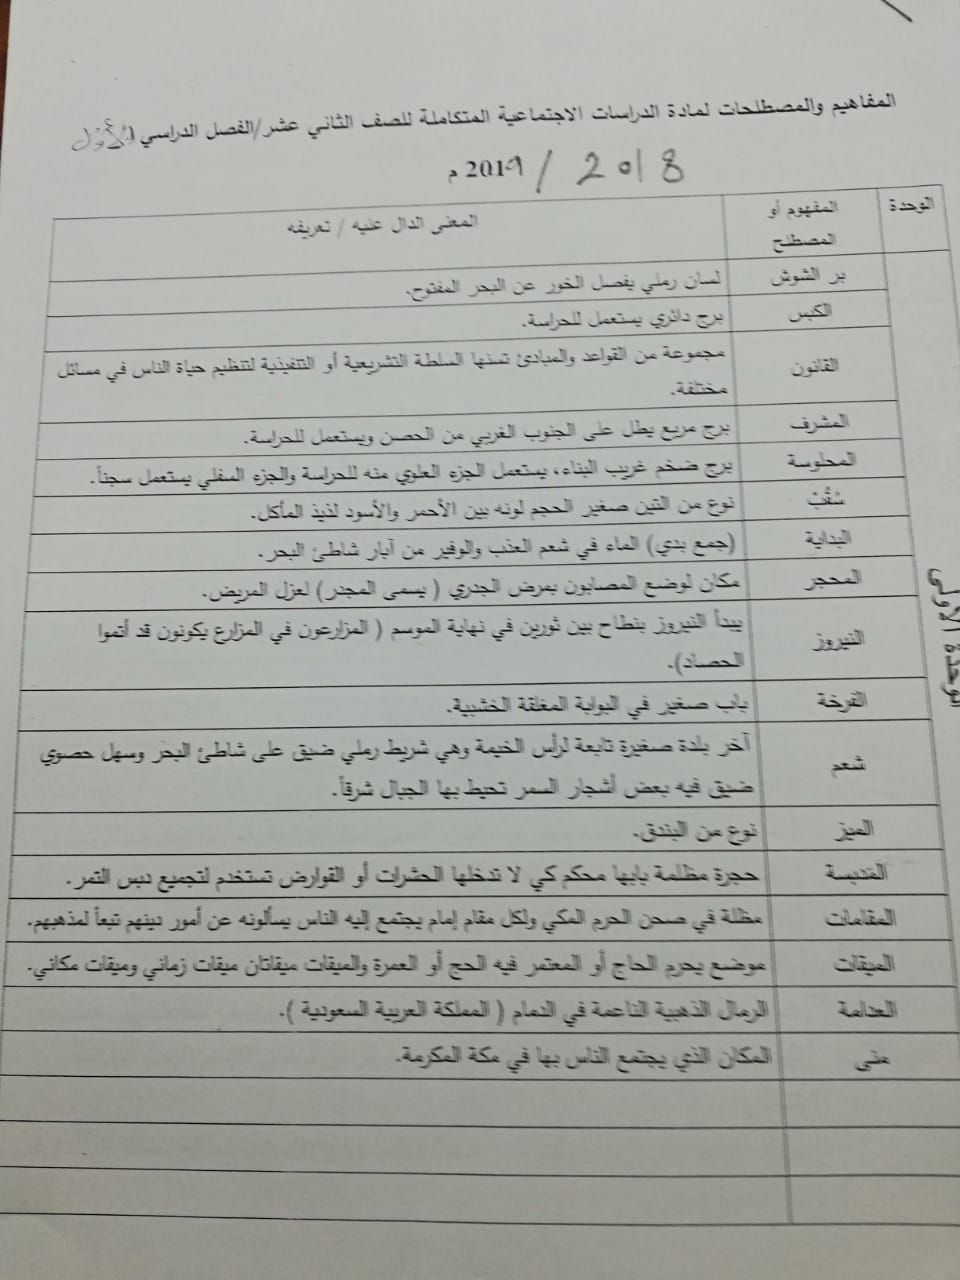 المفاهيم والمصطلحات لمادة الدراسات الاجتماعية المتكاملة للصف الثاني عشر/الفصل الدراسي الأول
2018 / 2019 م
الوحدة
المفهوم أو
المصطلح
المعنى الدال عليه / تعريفه
الوحدة الأولى
بر الشوش
لسان رملي يفصل الخور عن البحر المفتوح.
الكبس
برج دائري يستعمل للحراسة.
القانون
مجموعة من القواعد والمبادئ تسنها السلطة التشريعية أو التنفيذية لتنظيم حياة الناس في مسائل
مختلفة.
المشرف
برج مربع يطل على الجنوب الغربي من الحصن ويستعمل للحراسة.
المحلوسة
برج ضخم غريب البناء، يستعمل الجزء العلوي منه للحراسة والجزء السفلي يستعمل سجناً.
سُقُبْ
نوع من التين صغير الحجم لونه بين الأحمر والأسود لذيذ المأكل.
البداية
(جمع بدي) الماء في شعم العذب والوفير من آبار شاطئ البحر.
المحجر
مكان لوضع المصابون بمرض الجدري ( يسمى المجدر) لعزل المريض.
النيروز
يبدأ النيروز بنطاح بين ثورين في نهاية الموسم ( المزارعون في المزارع يكونون قد أتموا
الحصاد).
الفرخة
باب صغير في البوابة المغلقة الخشبية.
شعم
آخر بلدة صغيرة تابعة لرأس الخيمة وهي شريط رملي ضيق على شاطئ البحر وسهل حصوي
ضيق فيه بعض أشجار السمر تحيط بها الجبال شرقاً.
الميز
نوع من البندق.
المدبسة
حجرة مظلمة بابها محكم كي لا تدخلها الحشرات أو القوارض تستخدم لتجميع دبس التمر.
المقامات
مظلة في صحن الحرم المكي ولكل مقام إمام يجتمع إليه الناس يسألونه عن أمور دينهم تبعاً لمذهبهم.
الميقات
موضع يحرم الحاج أو المعتمر فيه الحج أو العمرة والميقات ميقاتان ميقات زماني وميقات مكاني.
العدامة
الرمال الذهبية الناعمة في الدمام ( المملكة العربية السعودية ).
منى
المكان الذي يجتمع الناس بها في مكة المكرمة.